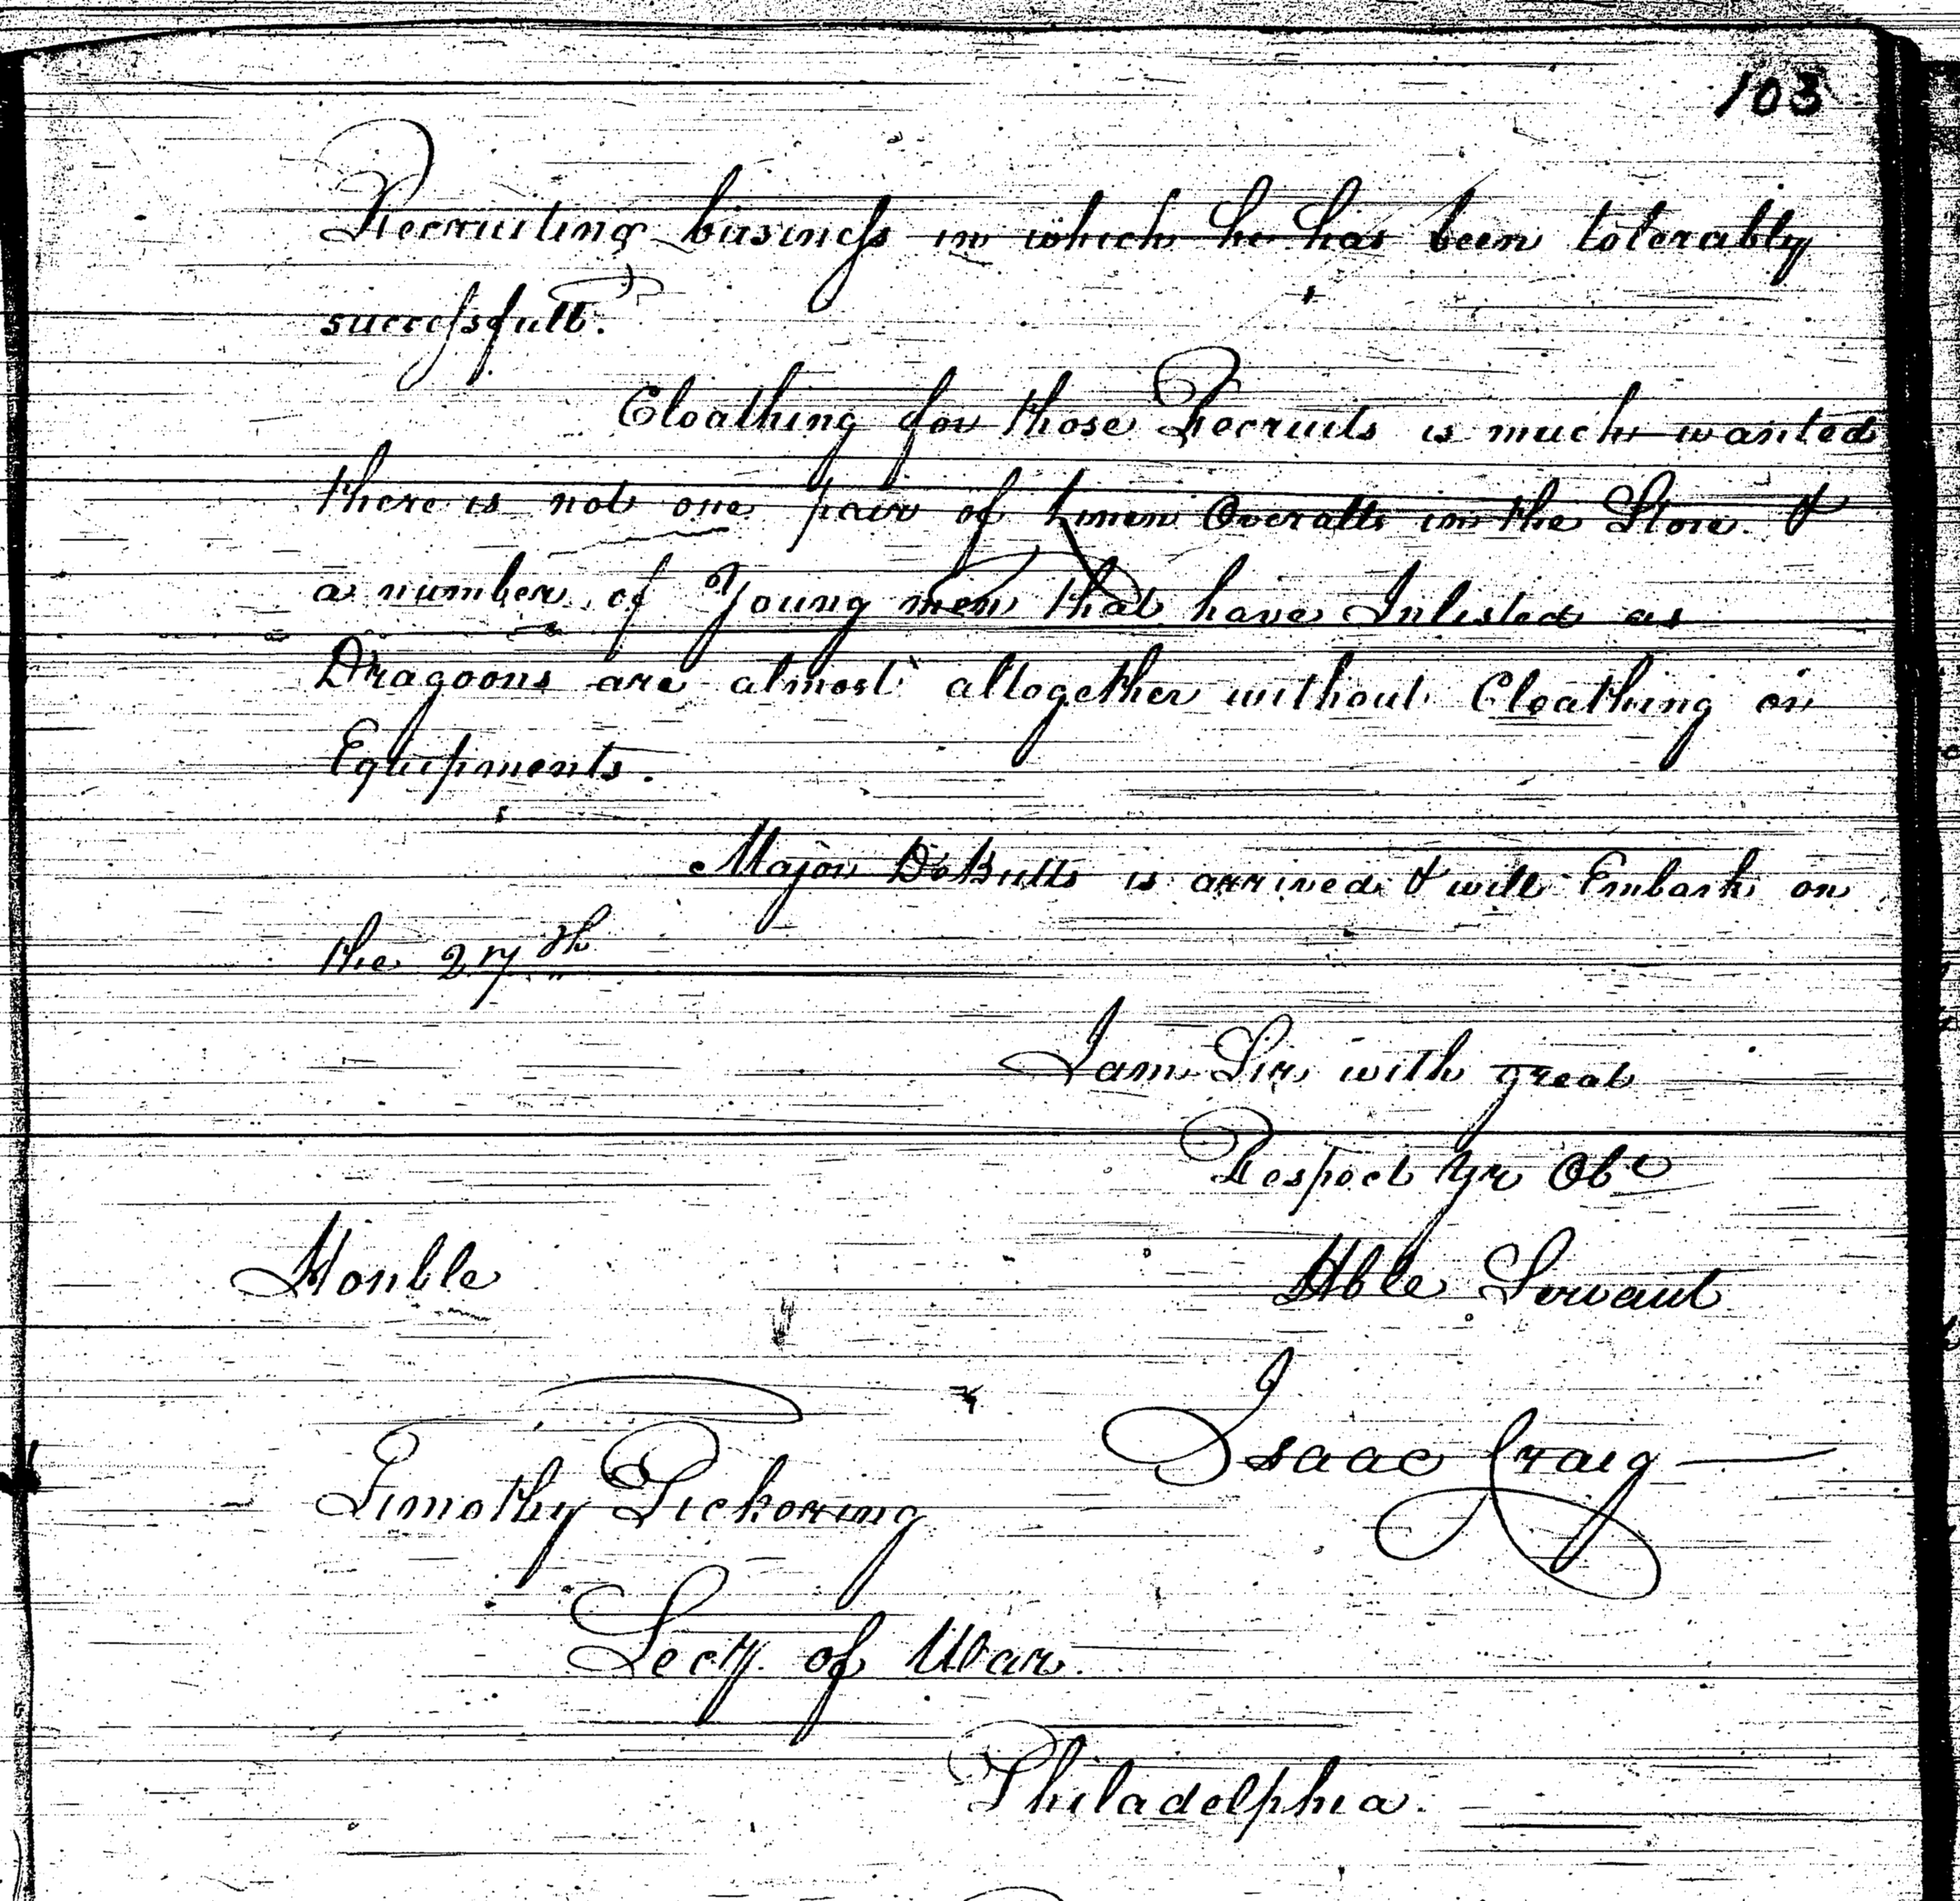 103
Recruiting business in which he has been tolerably
successfull.
Cloathing for those Recruits is much wanted
there is not one pair of Linen Overalls in the Store &
a number of Young men that have Inlisted as
Dragoons are almost altogether without Cloathing or
Equipments.
Major DeButts is arrived & will Embark on
the 27th
I am Sir with great
Respect Yr Obt
Honble
Hble Servant
Isaac Craig
Timothy Pickering
Secy. of War
Philadelphia.